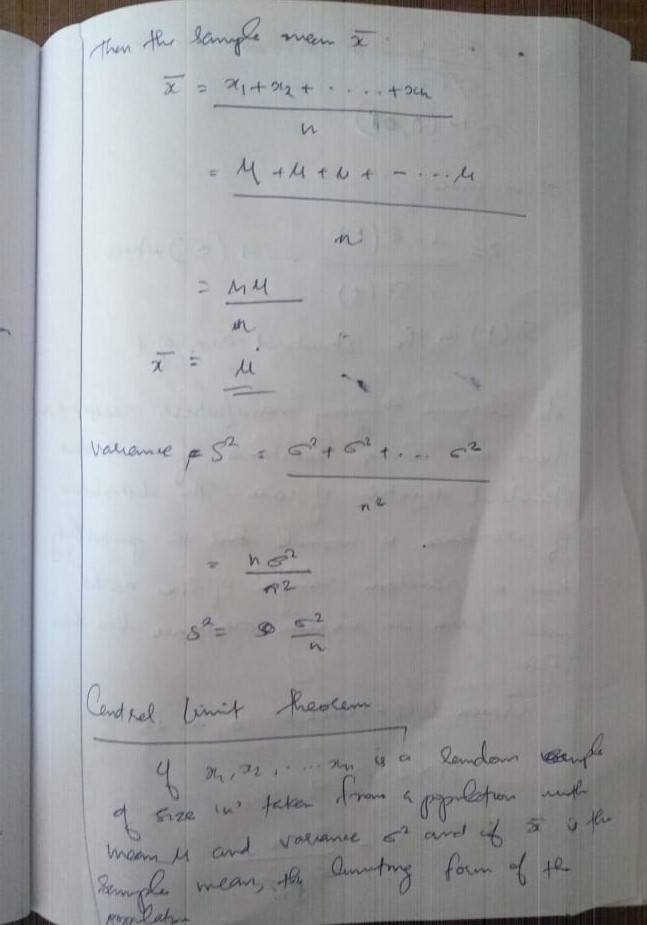 then the sample mean x̄
x̄ = x₁ + x₂ + ..... + xₙ
n
= μ + μ + μ + - ... μ
n
= nμ
n
x̄ = μ
variance S² = σ² + σ² + ... σ²
n²
= nσ²
n²
S² = σ²
n
Central limit theorem
If x₁, x₂, ..... xₙ is a random sample
of size 'n' taken from a population with
mean μ and variance σ² and if x̄ is the
Sample mean, the limiting form of the